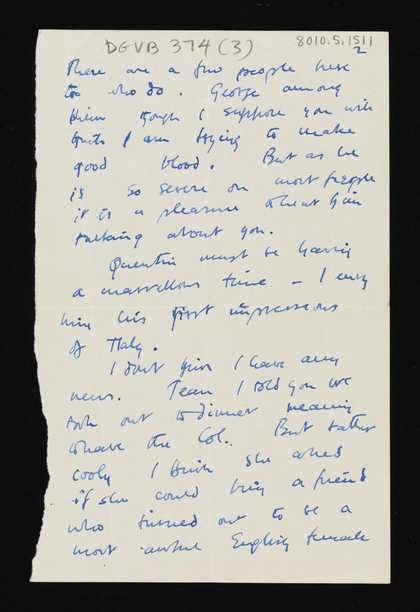 DGVB 374 (3)
8010.5.1511
2
there are a few people here
too who do. George among
them though I suppose you will
think I am trying to make
good blood. But as he
is so severe on most people
it is a pleasure to hear him
talking about you.
Quentin must be having
a marvellous time – I envy
him his first impressions
of Italy.
I don't think I have any
news. Jean I told you we
took out to dinner meaning
to have the Col. But rather
cooly I think she asked
if she could bring a friend
who turned out to be a
most awful English female